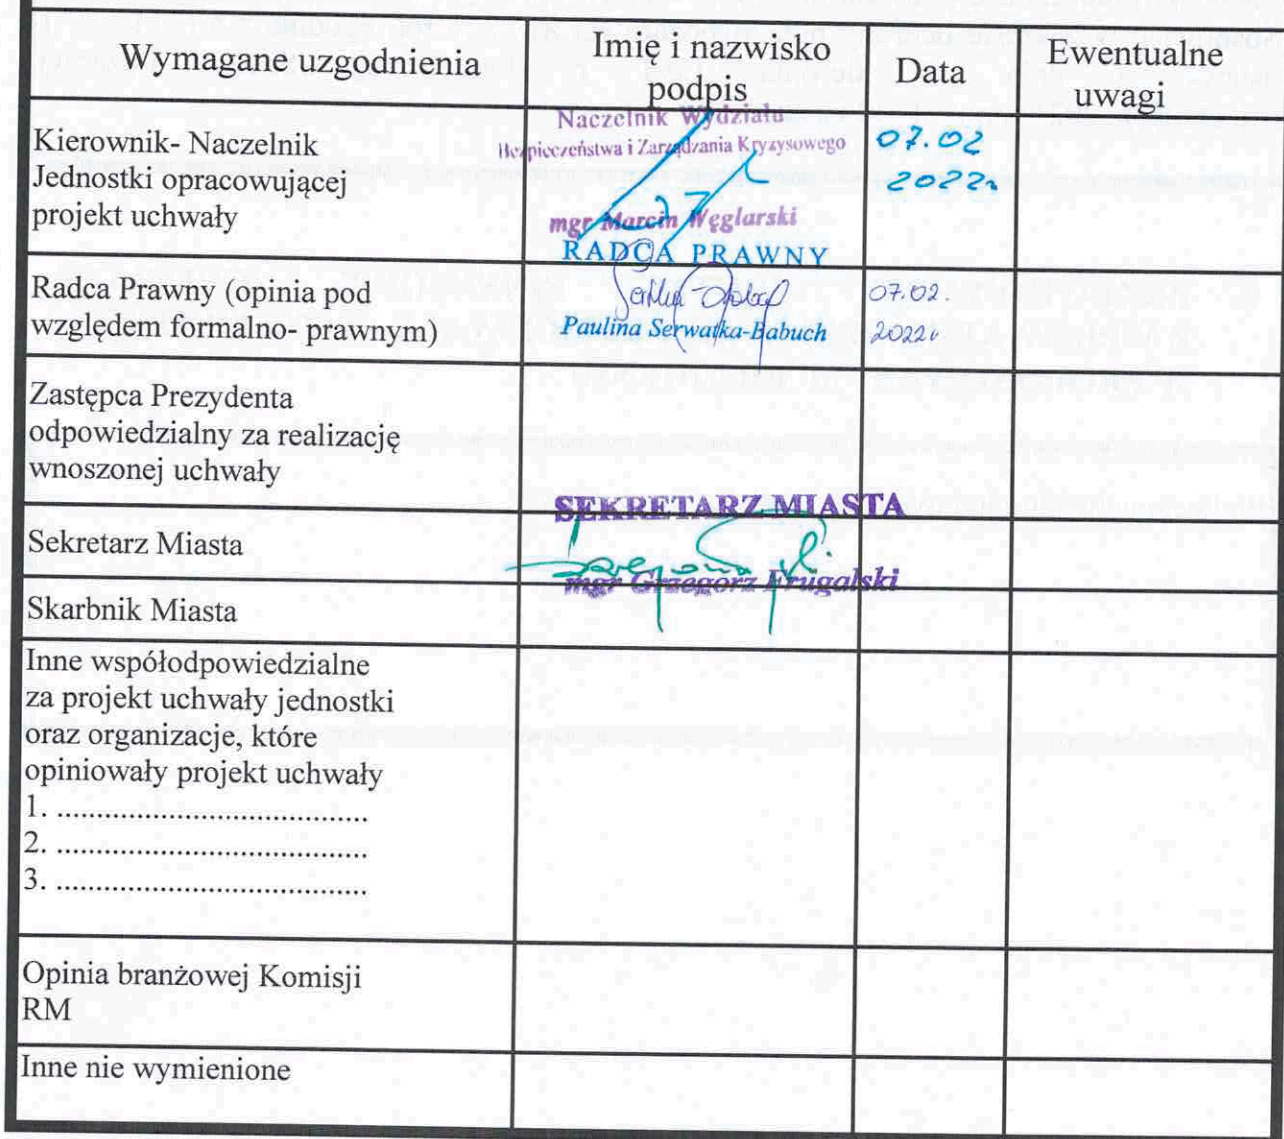 Wymagane uzgodnienia
Imię i nazwisko
podpis
Data
Ewentualne
uwagi
Kierownik- Naczelnik
Jednostki opracowującej
projekt uchwały
Naczelnik Wydziału
Bezpieczeństwa i Zarządzania Kryzysowego
mgr Marcin Węglarski
07.02
2022r
Radca Prawny (opinia pod
względem formalno- prawnym)
RADCA PRAWNY
Paulina Serwatka-Babuch
07.02.
2022r
Zastępca Prezydenta
odpowiedzialny za realizację
wnoszonej uchwały
Sekretarz Miasta
SEKRETARZ MIASTA
mgr Grzegorz Frugalski
Skarbnik Miasta
Inne współodpowiedzialne
za projekt uchwały jednostki
oraz organizacje, które
opiniowały projekt uchwały
1. .......................................
2. .......................................
3. .......................................
Opinia branżowej Komisji
RM
Inne nie wymienione